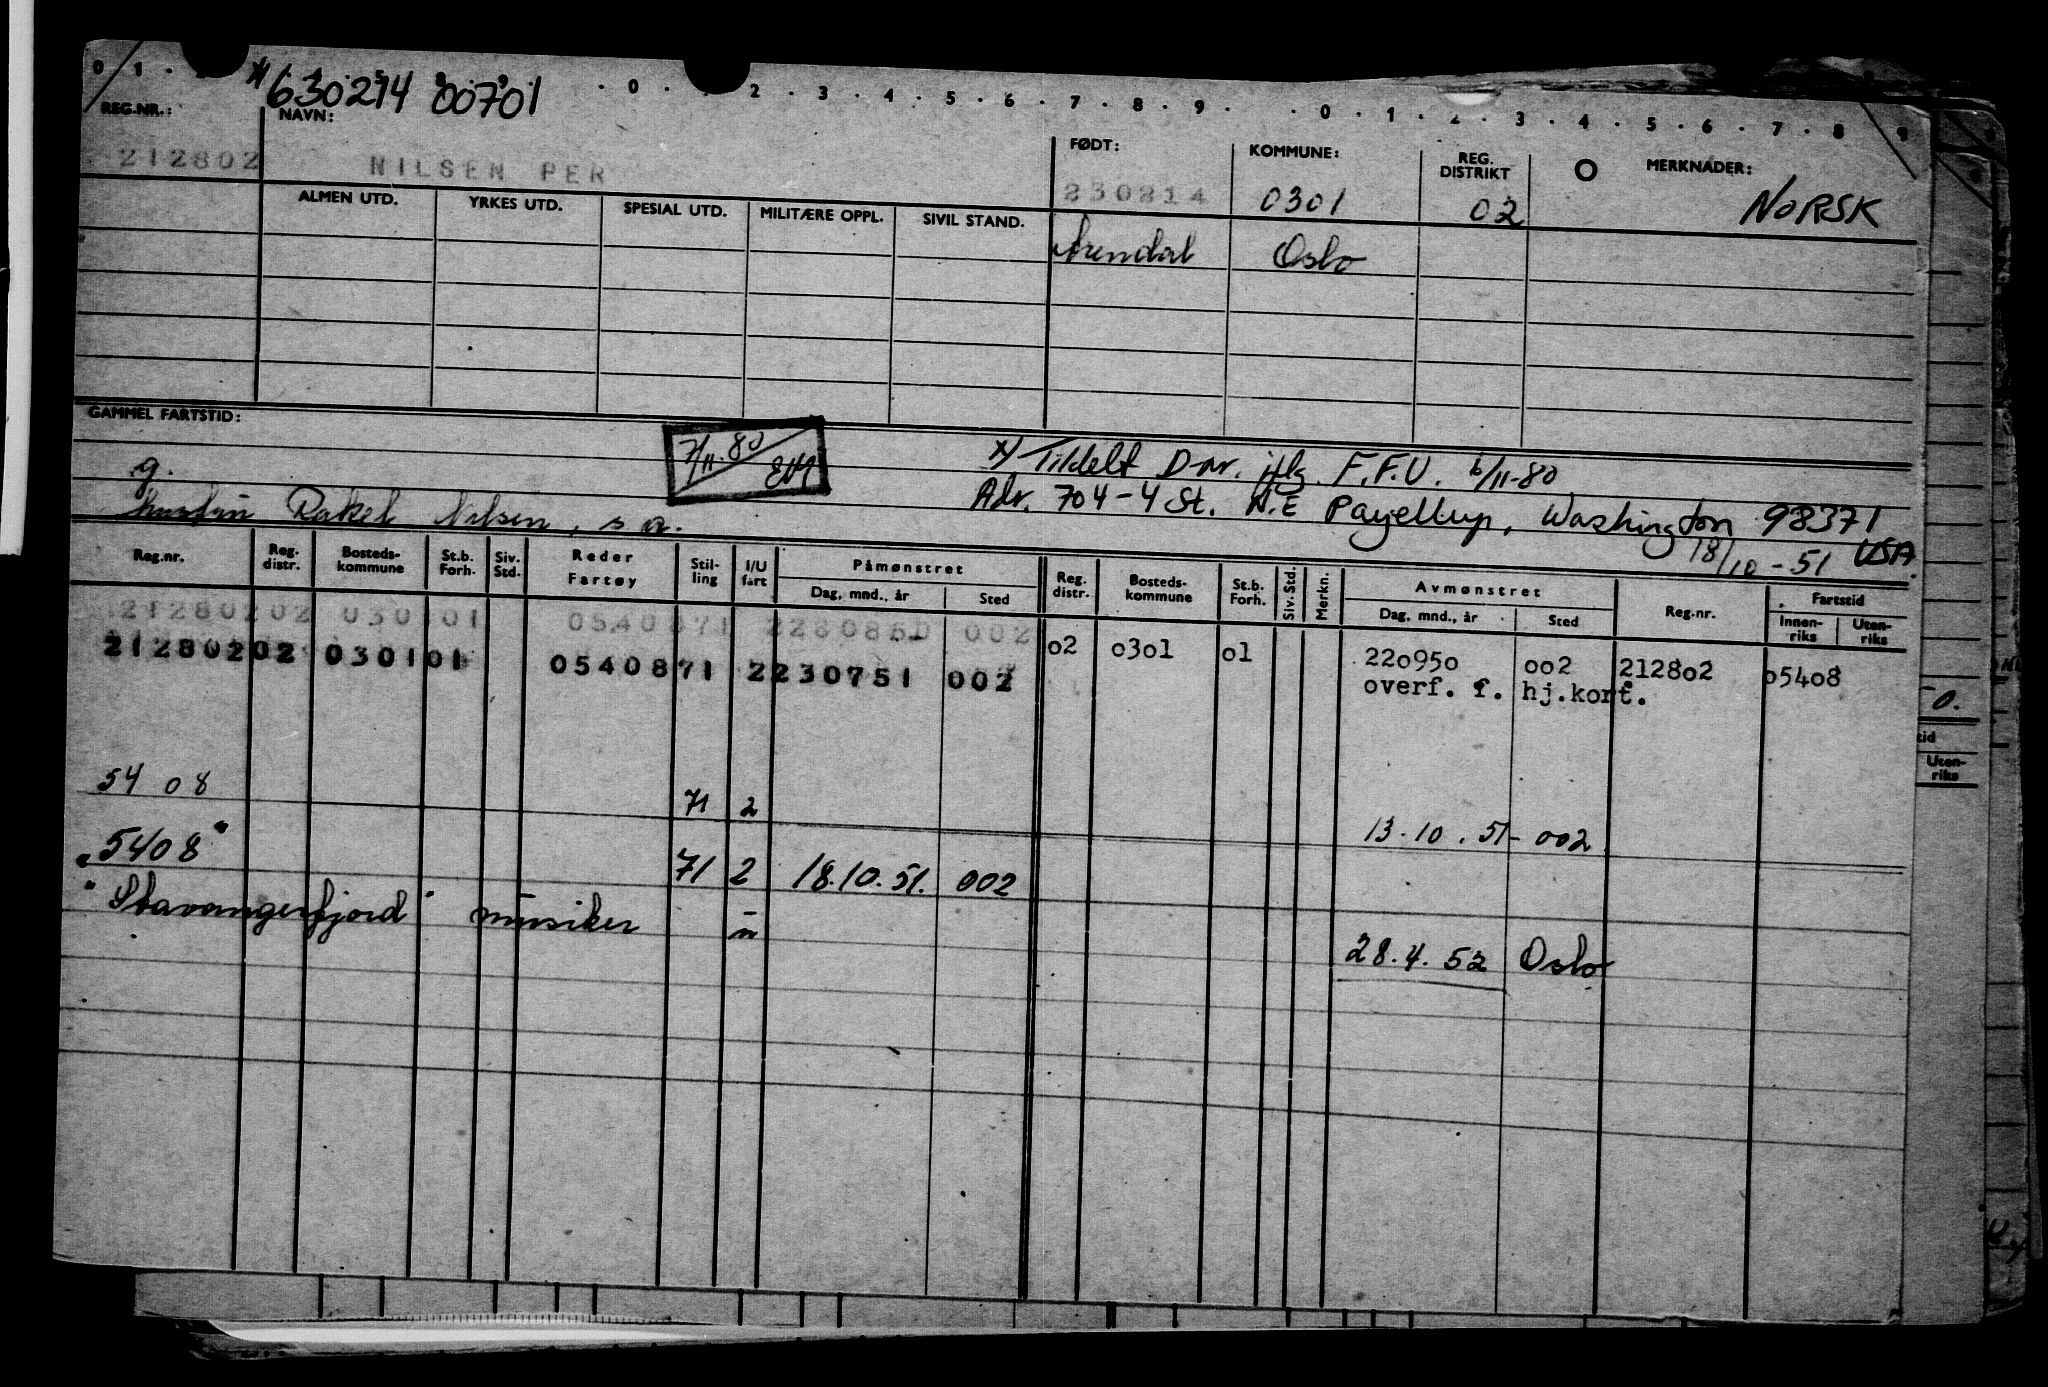 0 1 * 630214 00701 0 2 3 4 5 6 7 8 9 0 1 2 3 4 5 6 7 8 9
REG.NR.: NAVN: FØDT: KOMMUNE: REG. DISTRIKT MERKNADER:
212802 NILSEN PER 230214 0301 02 NORSK
ALMEN UTD. YRKES UTD. SPESIAL UTD. MILITÆRE OPPL. SIVIL STAND. Arendal Oslo
GAMMEL FARTSTID:
7/11.80 EM
x) Tildelt D-nr. iflg. F.F.U. 6/11-80
g.
Adr. 704-4 St. N.E Payellup, Washington 98371 USA.
hustru Rakel Nilsen, s.a.
18/10-51
Reg.nr. Reg. distr. Bosteds-kommune St.b. Forh. Siv. Std. Reder Fartøy Stil-ling I/U fart Påmønstret Dag, mnd., år Sted Reg. distr. Bosteds-kommune St.b. Forh. Siv. Std. Merkn. Avmønstret Dag, mnd., år Sted Reg.nr. Fartstid Innen-riks Uten-riks
21280202 030101 0540871 2280850 002
02 0301 01 220950 002 212802 05408
21280202 030101 0540871 2230751 002
overf. f. hj.kort.
5408 71 2 13.10.51- 002
"5408" 71 2 18.10.51. 002
"Stavangerfjord" musiker
28.4.52 Oslo
0.
tid
Uten-riks